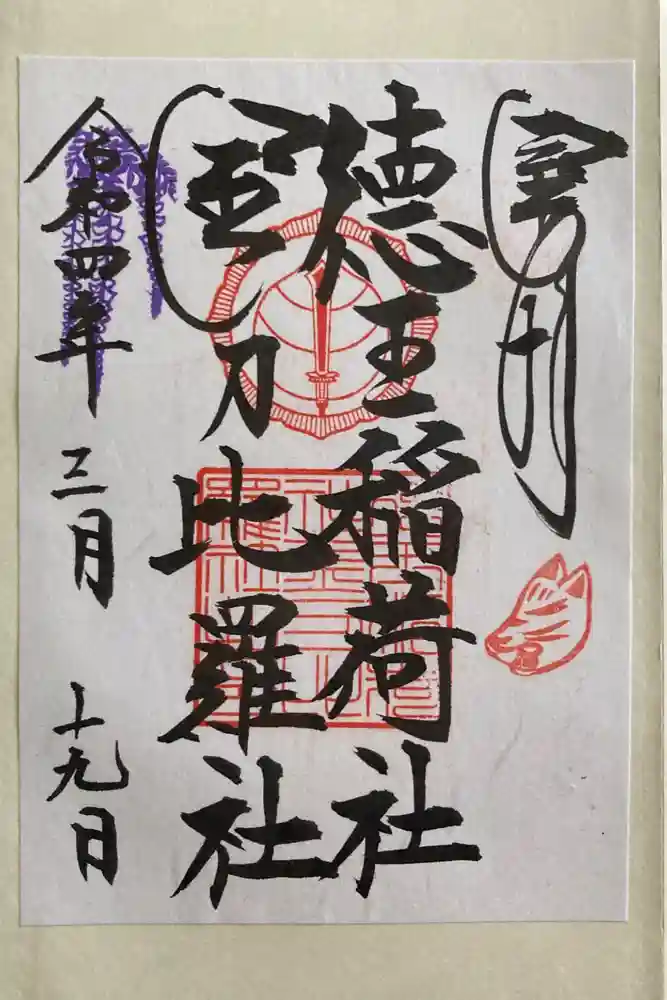 徳王稲荷社
金刀比羅社
令和四年 三月 十九日